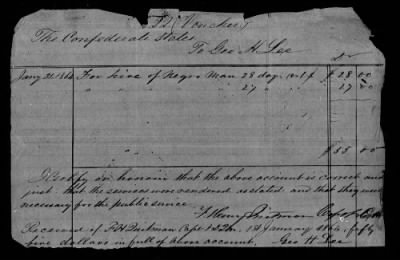 (Voucher)
The Confederate States
To Geo H. Lee
Jany 31. 1864 For hire of Negro Man 28 days $ 28 00
" " " 27 " " 27 00
$ 55 00
I certify on honour that the above account is correct and
just that the services were rendered as stated and that they were
necessary for the public service
Received of Capt 1st January 1864, fifty
five dollars in full of above account. Geo H Lee